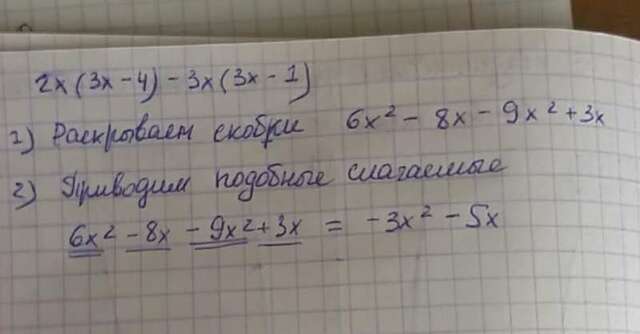 2x(3x-4)-3x(3x-1)
1) Раскрываем скобки 6x² - 8x - 9x² + 3x
2) Приводим подобные слагаемые
6x² - 8x - 9x² + 3x = -3x² - 5x